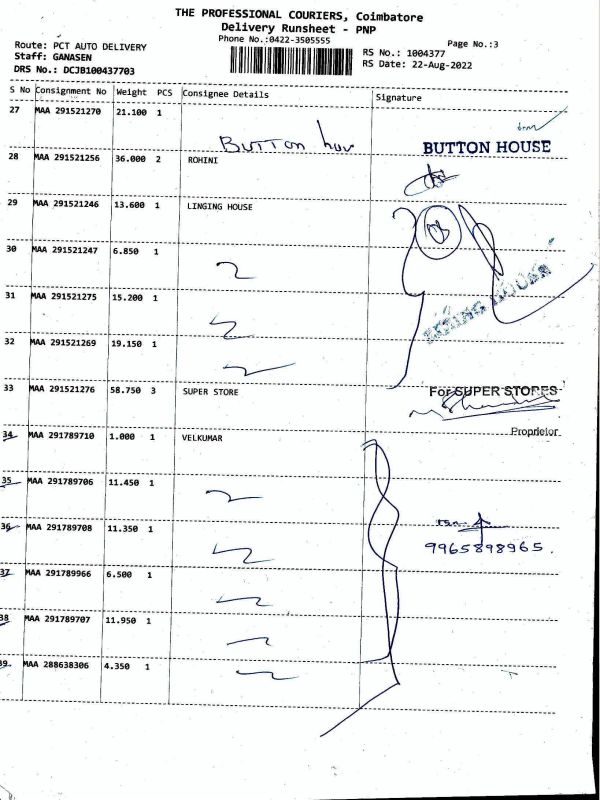 THE PROFESSIONAL COURIERS, Coimbatore
Delivery Runsheet - PNP
Phone No.:0422-3505555
Page No.:3
Route: PCT AUTO DELIVERY
RS No.: 1004377
Staff: GANASEN
RS Date: 22-Aug-2022
DRS No.: DCJB100437703
S No Consignment No Weight PCS Consignee Details Signature
27 MAA 291521270 21.100 1
BUTTON HOUSE
28 MAA 291521256 36.000 2 ROHINI
29 MAA 291521246 13.600 1 LINGING HOUSE
30 MAA 291521247 6.850 1
31 MAA 291521275 15.200 1
32 MAA 291521269 19.150 1
33 MAA 291521276 58.750 3 SUPER STORE
For SUPER STORES
Proprietor
34 MAA 291789710 1.000 1 VELKUMAR
35 MAA 291789706 11.450 1
36 MAA 291789708 11.350 1
9965898965.
37 MAA 291789966 6.500 1
38 MAA 291789707 11.950 1
39. MAA 288638306 4.350 1